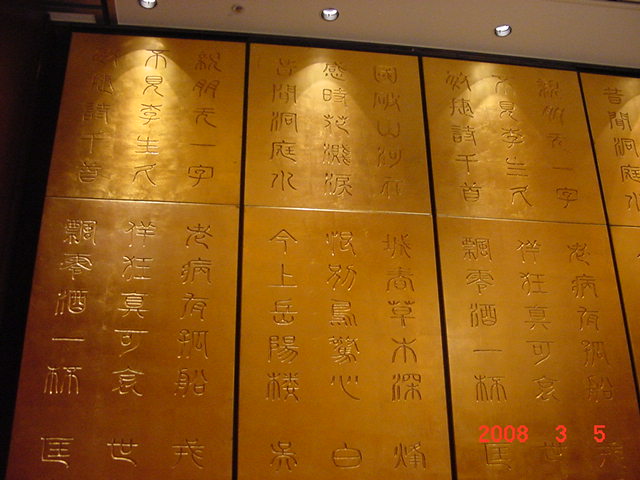 昔聞洞庭水
親朋无一字老病有孤船戎
不見李生久佯狂真可哀世
敏捷詩千首飄零酒一杯匡
國破山河在城春草木深烽
感時花濺淚恨別鳥驚心白
昔聞洞庭水今上岳陽楼吳
親朋无一字老病有孤船戎
不見李生久佯狂真可哀世
敏捷詩千首飄零酒一杯匡
2008 3 5